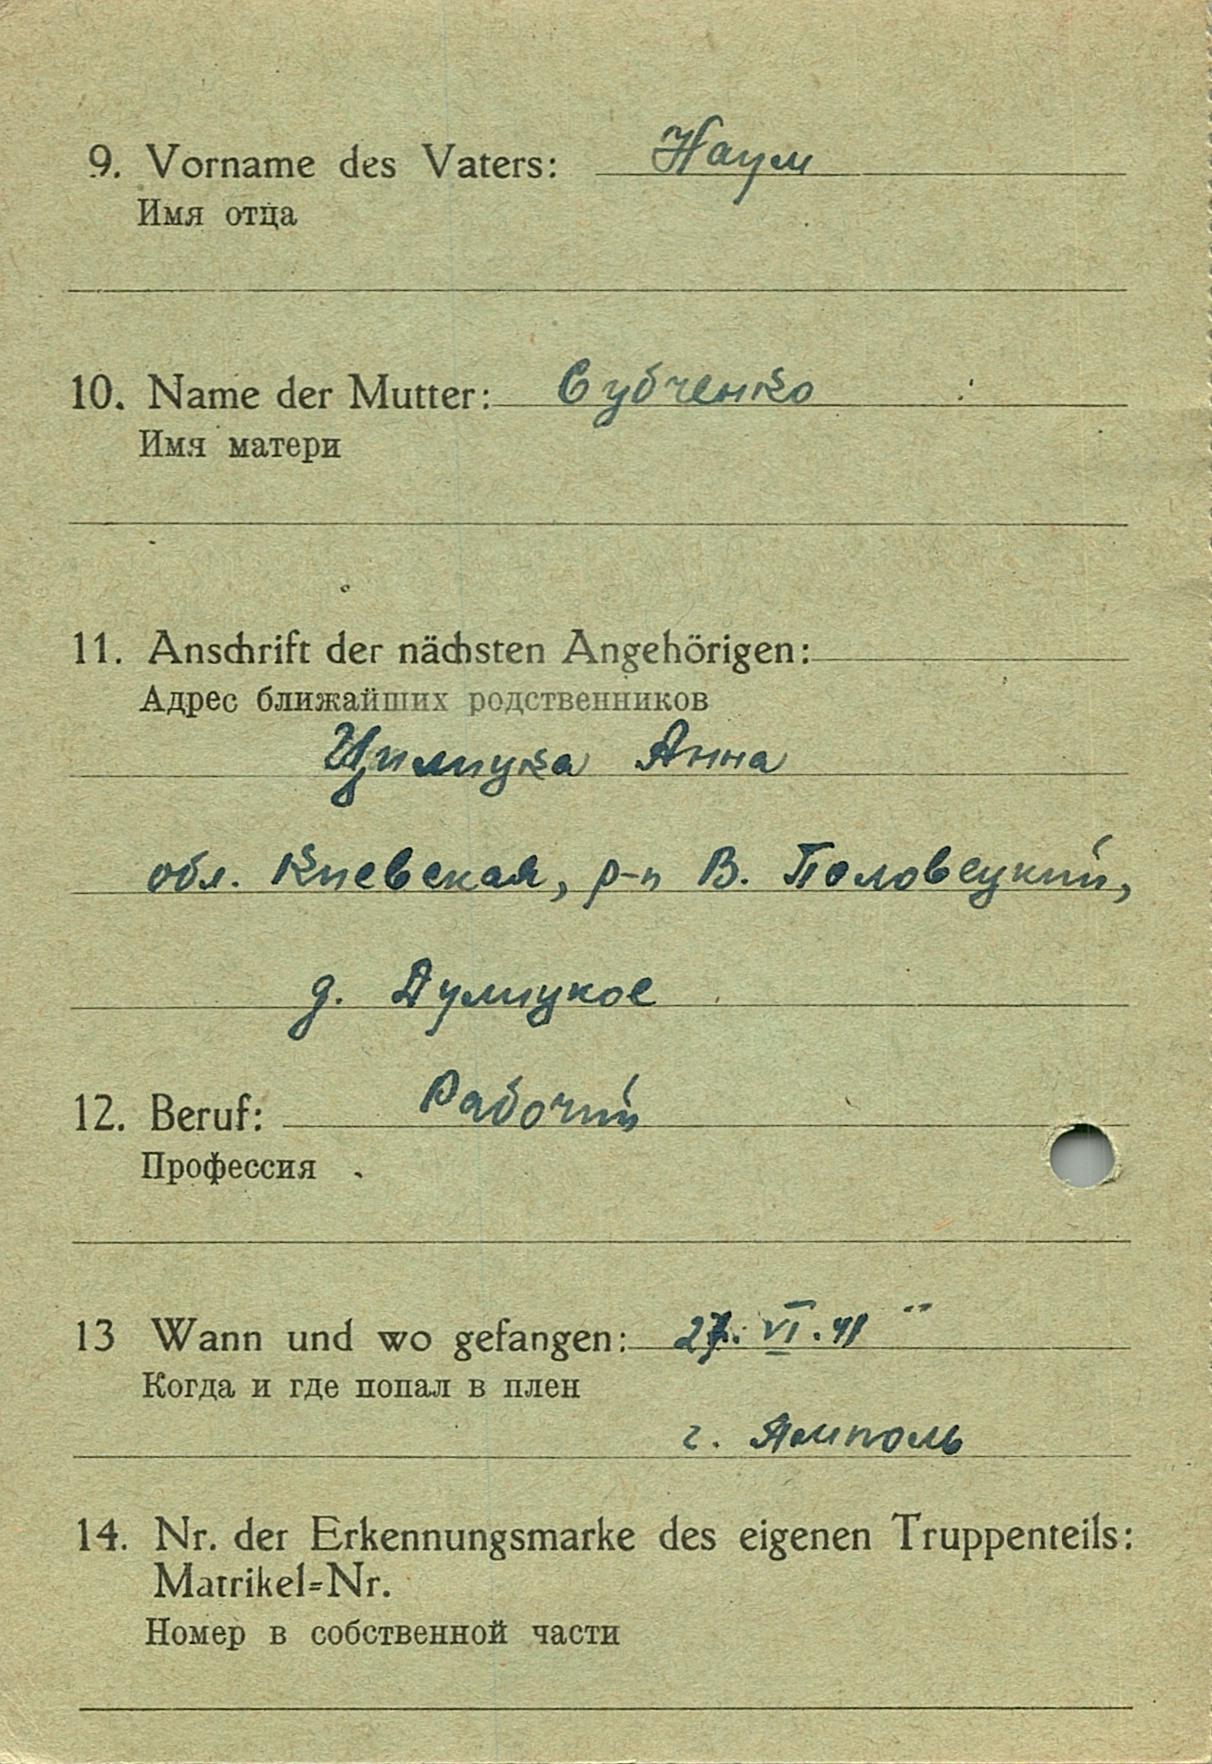 9. Vorname des Vaters: Наум
Имя отца
10. Name der Mutter: Субченко
Имя матери
11. Anschrift der nächsten Angehörigen:
Адрес ближайших родственников
Анна
обл. Киевская, р-н В. Половецкий,
д. Думицкое
12. Beruf: Рабочий
Профессия
13 Wann und wo gefangen: 27. VI. 41
Когда и где попал в плен
г. Ямполь
14. Nr. der Erkennungsmarke des eigenen Truppenteils:
Matrikel=Nr.
Номер в собственной части